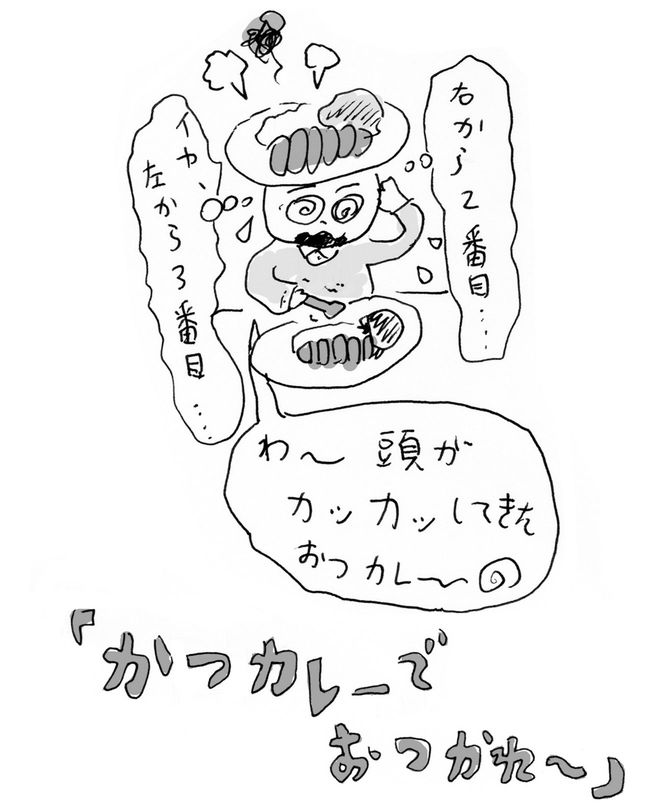 右から2番目…
イヤ、
左から3番目…
わ〜 頭が
カッカッしてきた
おつカレ〜
「かつカレーで
おつかれ〜」